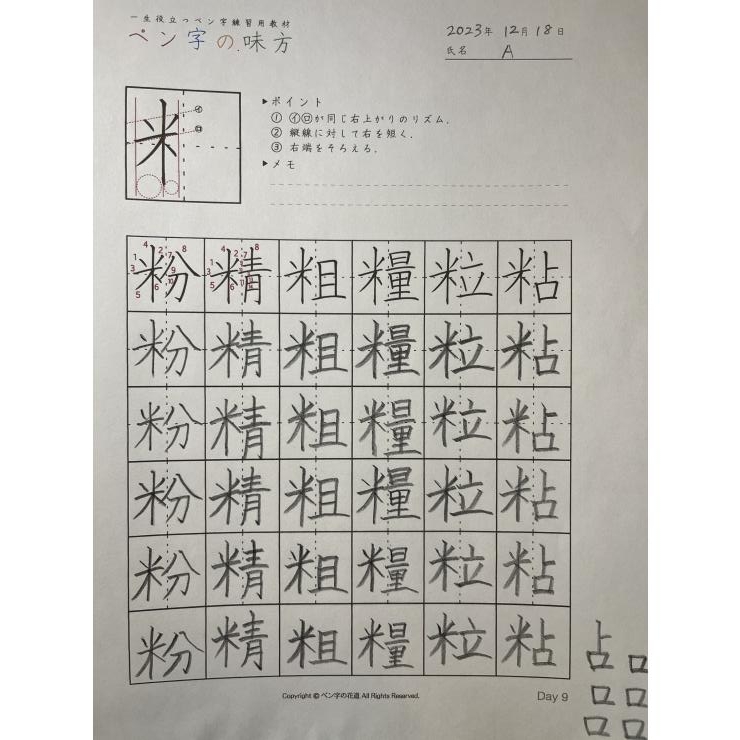 一生役立つペン字練習用教材
ペン字の味方
2023年 12月 18日
氏名 A
米
イ
ロ
▶ポイント
① ㋑㋺が同じ右上がりのリズム.
② 縦線に対して右を短く.
③ 右端をそろえる.
▶メモ
粉 精 粗 糧 粒 粘
粉 精 粗 糧 粒 粘
粉 精 粗 糧 粒 粘
粉 精 粗 糧 粒 粘
粉 精 粗 糧 粒 粘
粉 精 粗 糧 粒 粘
占 口
口 口
口 口
Copyright © ペン字の花道 All Rights Reserved.
Day 9